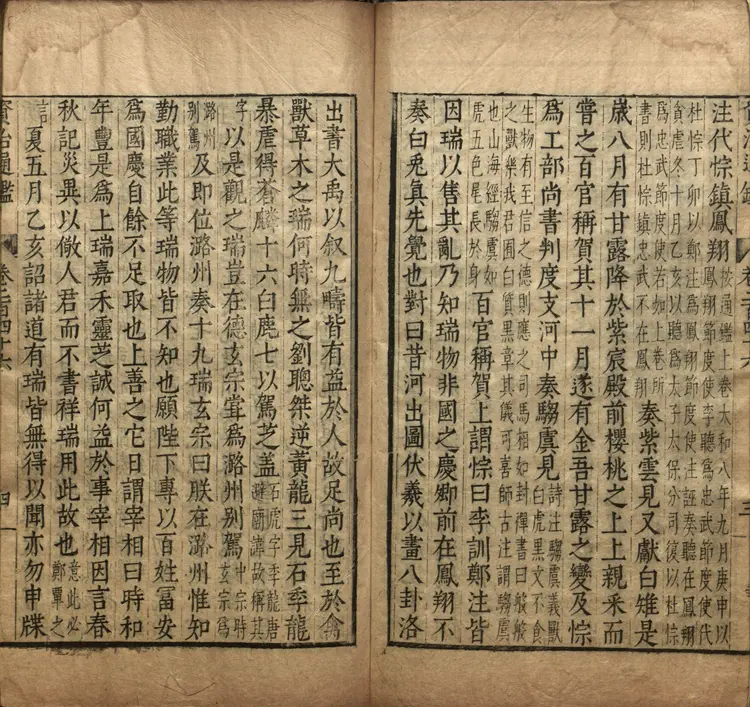 注代悰鎮鳳翔按通鑑上卷大和八年九月庚申以鳳翔節度使李聽爲忠武節度使代
杜悰丁卯以鄭注爲鳳翔節度使注誣奏聽在鳳翔
貪虐冬十月乙亥以聽爲太子太保分司復以杜悰
爲忠武節度使若如上卷所書則杜悰鎮忠武不在鳳翔奏紫雲見又獻白雉是
歲八月有甘露降於紫宸殿前櫻桃之上上親采而
嘗之百官稱賀其十一月遂有金吾甘露之變及悰
爲工部尚書判度支河中奏騶虞見詩注騶虞義獸白虎黑文不食
生物有至信之德則應之司馬相如封禪書曰般般
之獸樂我君囿白質黑章其儀可喜師古注謂騶虞
也山海經騶虞如虎五色尾長於身百官稱賀上謂悰曰李訓鄭注皆
因瑞以售其亂乃知瑞物非國之慶卿前在鳳翔不
奏白兔真先覺也對曰昔河出圖伏羲以畫八卦洛
出書大禹以叙九疇皆有益於人故足尚也至於禽
獸草木之瑞何時無之劉聰桀逆黃龍三見石季龍
暴虐得蒼麟十六白鹿七以駕芝蓋石虎字季龍唐避廟諱故稱其
字以是觀之瑞豈在德玄宗甞爲潞州别駕中宗時玄宗爲
潞州别駕及即位潞州奏十九瑞玄宗曰朕在潞州惟知
勤職業此等瑞物皆不知也願陛下專以百姓冨安
爲國慶自餘不足取也上善之它日謂宰相曰時和
年豐是爲上瑞嘉禾靈芝誠何益於事宰相因言春
秋記災異以儆人君而不書祥瑞用此故也意此必鄭覃之
言夏五月乙亥詔諸道有瑞皆無得以聞亦勿申牒
資治通鑑 卷二百四十六 四